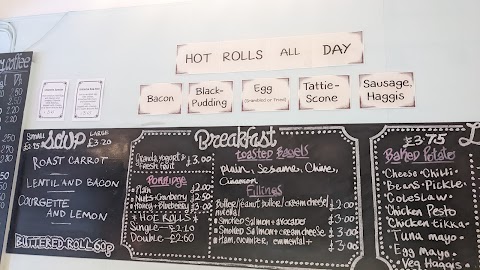 HOT ROLLS ALL DAY
Bacon
Black-
Pudding
Egg
(Scrambled or Fried)
Tattie-
Scone
Sausage,
Haggis
coffee
SMALL
SOUP
LARGE
£3.20
ROAST CARROT
LENTIL AND BACON
COURGETTE
AND LEMON
BUTTERED ROLL 60p
Breakfast
Granola yogurt &
Fresh fruit £3.00
Porridge
Plain £2.00
Nuts + Cranberry £2.50
Honey + Blueberry £3.00
HOT ROLLS
Single - £2.10
Double - £2.60
Toasted Bagels
Plain, Sesame, Chive,
Cinnamon
Fillings
Butter/peanut butter/cream cheese/
nutella £2.00
Smoked Salmon + avocado £3.00
Smoked Salmon + cream cheese £3.00
Ham, cucumber, emmental £3.00
£3.75
Baked Potato
Cheese Chilli
Beans Pickle
Coleslaw
Chicken Pesto
Chicken tikka
Tuna mayo
Egg mayo
Veg Haggis